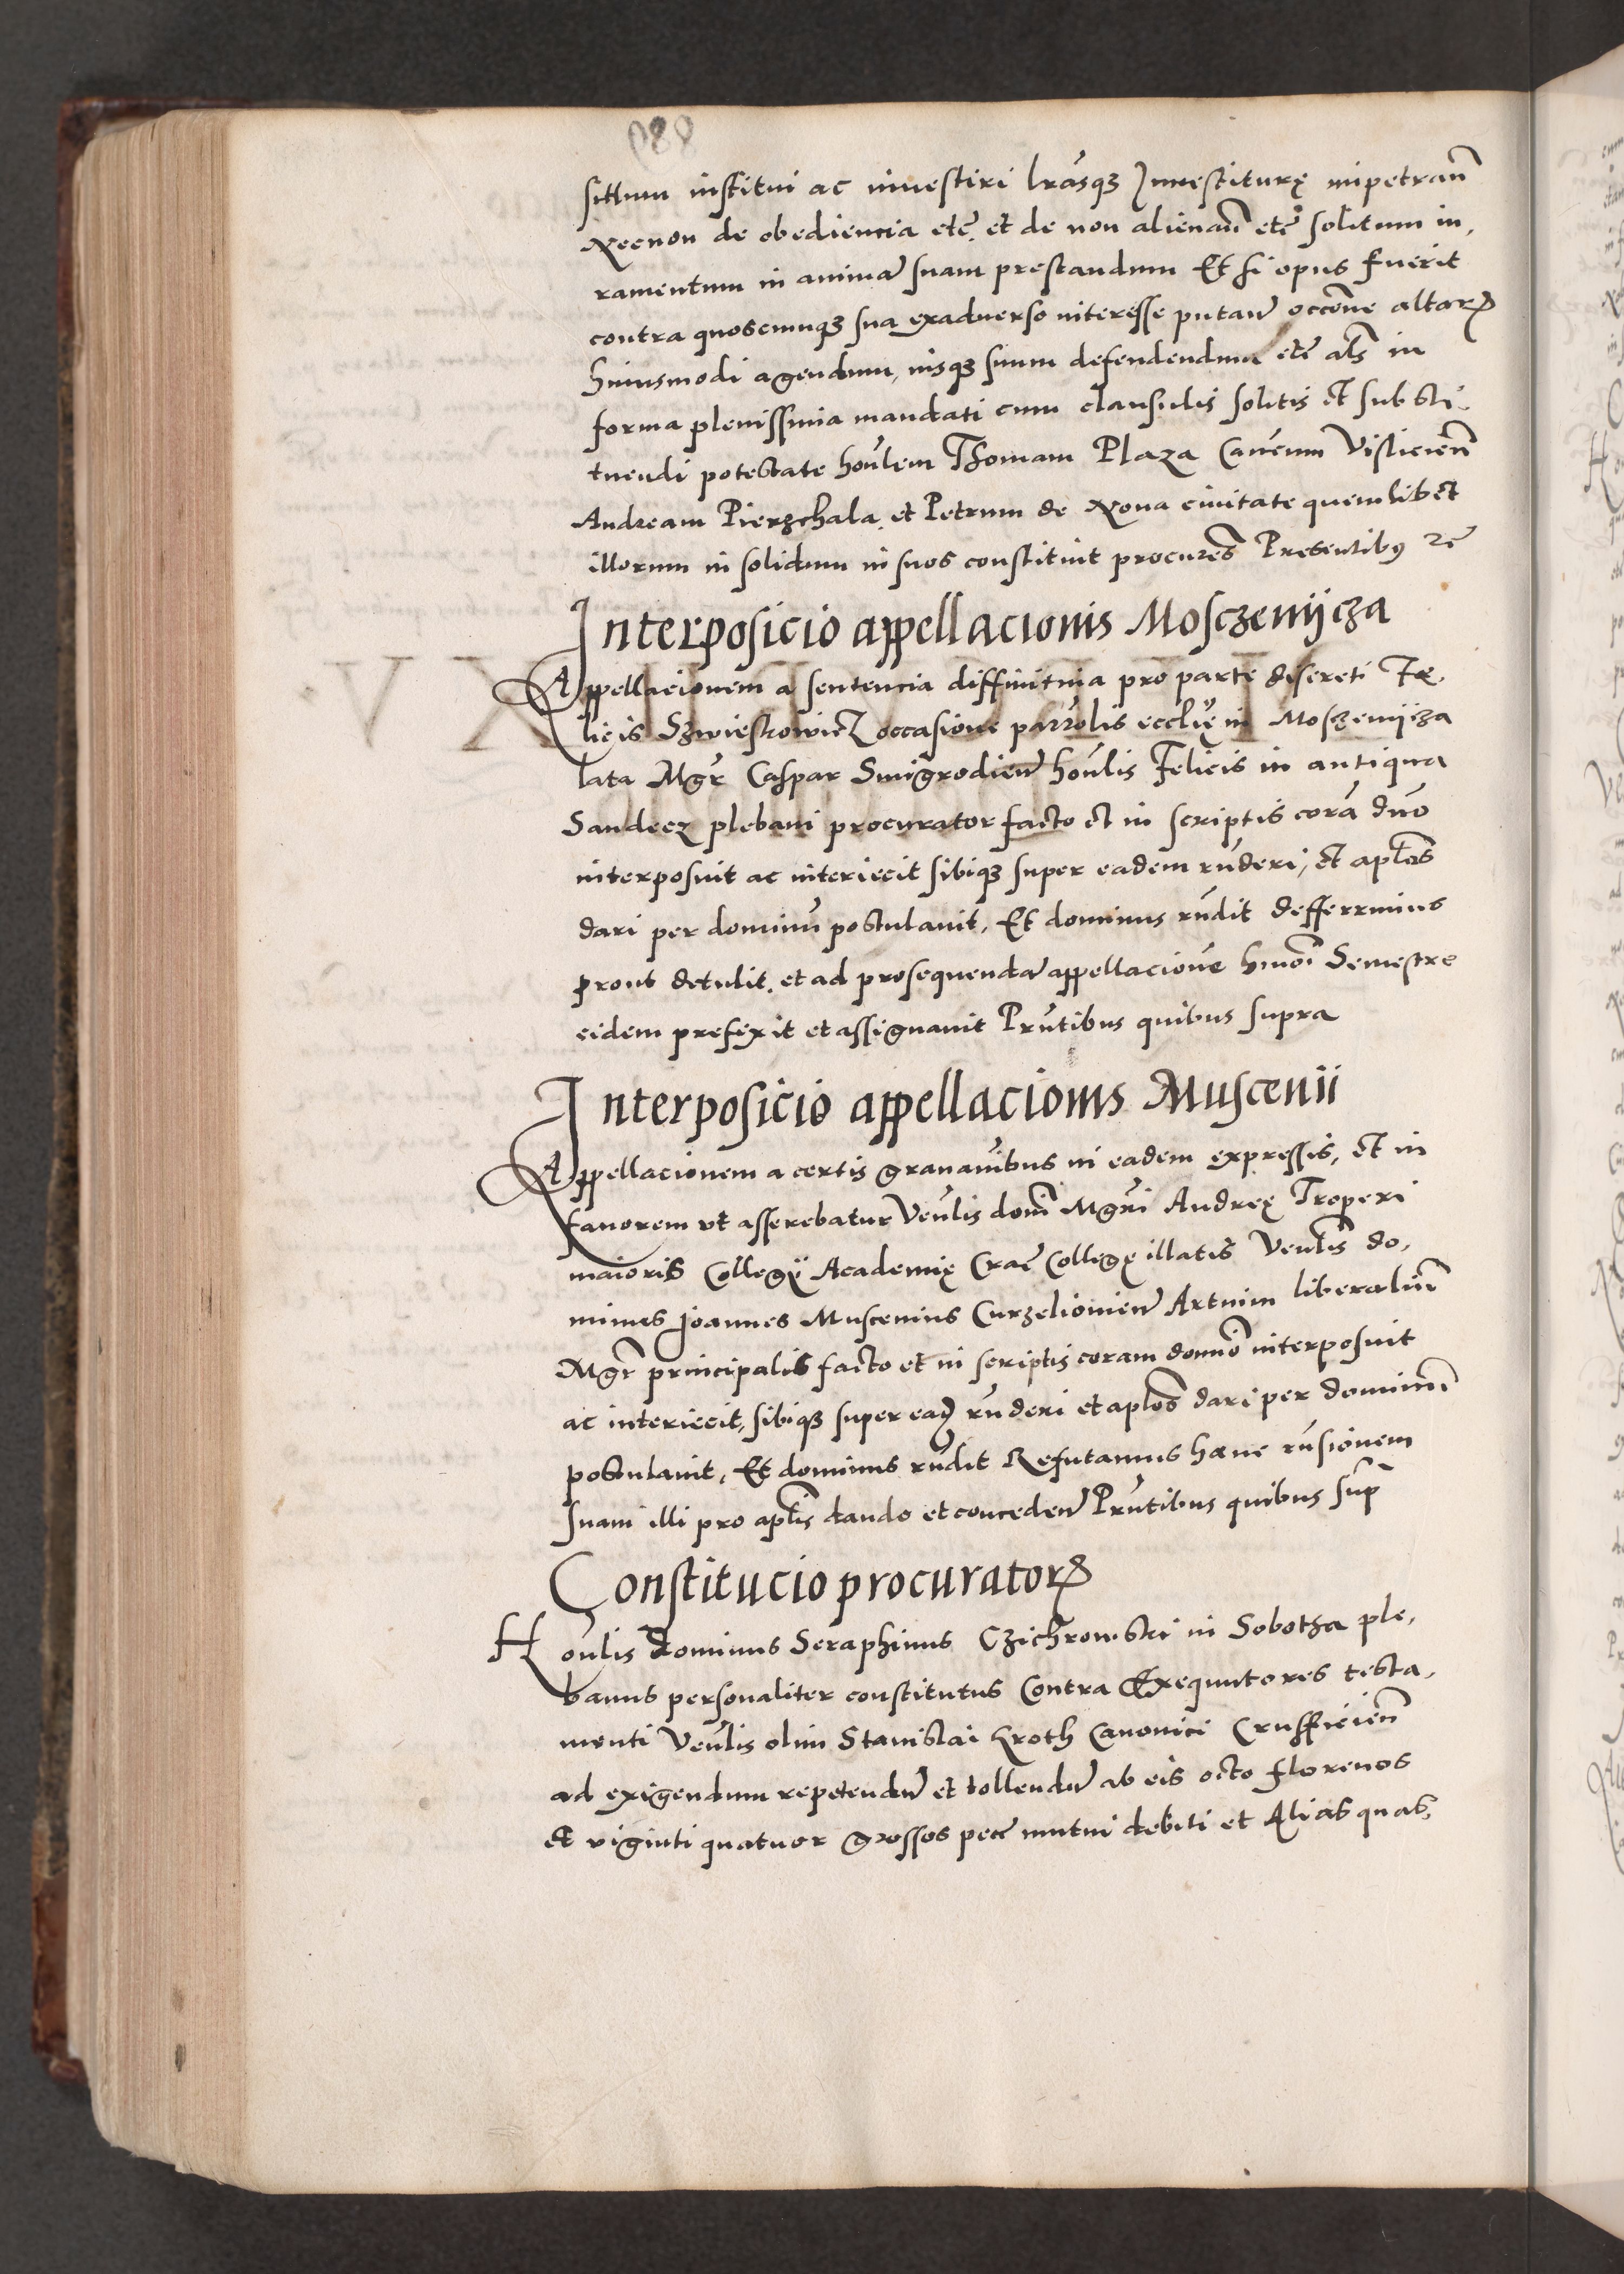 situm institui ac investiri lrãsq3 Investiturę impetrañ
Necnon de obediencia etč. et de non alienañ etč solitum iu,
ramentum in animã suam prestandum Et si opus fuerit
contra quoscumq3 sua exadverso interesse putañ occõne altarꝝ
huiusmodi agendum, iusq3 suum defendendum etč als in
forma plenissima mandati cum clausulis solitis et substi,
tuendi potestate honlem Thomam Plaza Cañcum Visliciens̃
Andream Pierzchala, et Petrum de Nova civitate quemlibet
illorum in solidum in suos constituit procures Presentibꝰ rč
Interposicio appellacionis Mosczenijcza
Appellacionem a sentencia diffinitiva pro parte discreti Fæ,
licis Szwiestrowicz occasione parrolis eccłię in Mosczenijcza
lata Mgr̃ Caspar Smigrodieñ honlis Felicis in antiqua
Sandecz plebani procurator facto et in scriptis corã dño
interposuit ac interiecit sibiq3 super eadem rñderi, et apłos
dari per dominũ postulavit, Et dominus rñdit defferimus
prout detulit, et ad prosequendã appellacionẽ hmõi Semestre
eidem prefixit et assignavit Prñtibus quibus supra
Interposicio appellacionis Muscenii
Appellacionem a certis gravañibus in eadem expressis, et in
favorem ut asserebatur Venlis domi Mgri Andreę Troperi
maioris Collegij Academię Crač Collegę illatis Venlis do,
minus Joannes Muscenius Curzelovieñ Artium liberaliũ
Mgr̃ principalis facto et in scriptis coram domño interposuit
ac interiecit, sibiq3 super eadꝫ rñderi et apłos dari per dominũ
postulavit, Et dominus rñdit Refutamus hanc rñsionem
suam illi pro apłis dando et concedeñ Prñtibus quibus sup̃
Constitucio procuratorꝝ
Honlis dominus Seraphinus Czichrowski in Sobotka ple,
banus personaliter constitutus Contra Exequutores testa,
menti Venlis olim Stanislai Kroth Canonici Cruffitien̄
ad exigendum repetendũ et tollendũ ab eis octo florenos
et viginti quatuor grossos peč mutui debiti et Alias quas,